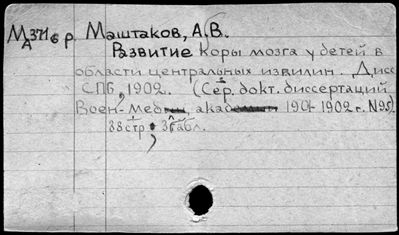 МА371б р. Маштаков, А.В.
Развитие коры мозга у детей в
области центральных извилин. Дисс
СПб, 1902. (Сер. докт. диссертаций
Воен.-Мед. акад. 1901-1902 г. N95).
88 стр., 3 табл.